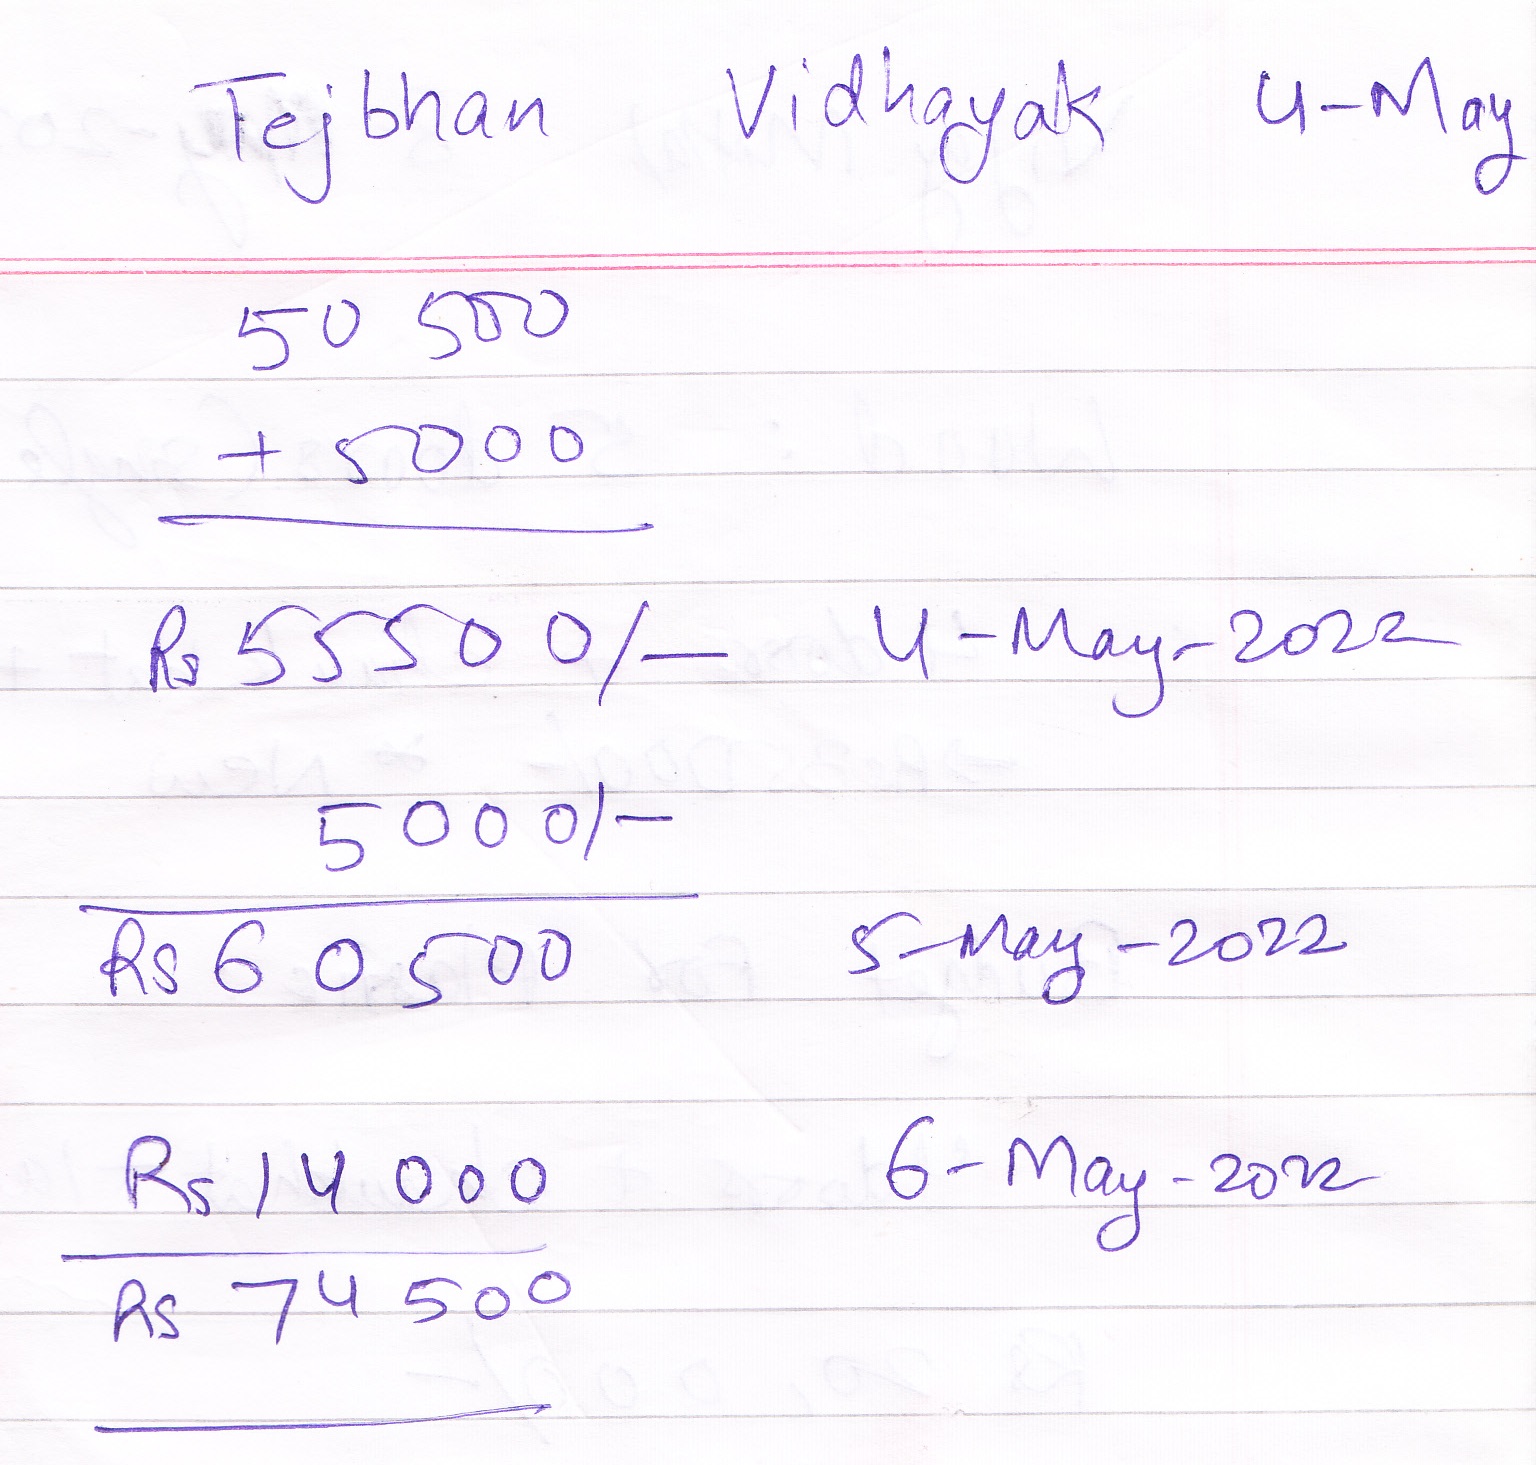 Tejbhan Vidhayak 4-May
50 500
+ 5000
Rs 55500/- 4-May-2022
5000/-
Rs 60500 5-May-2022
Rs 14000 6-May-2022
Rs 74500